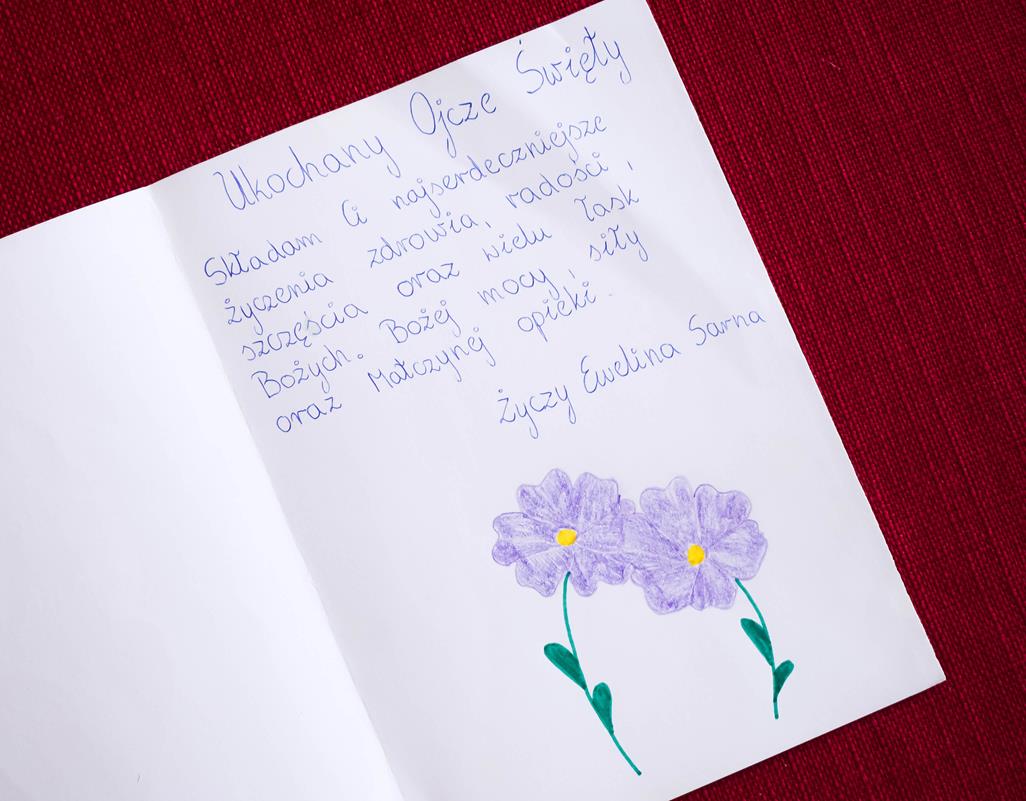 Ukochany Ojcze Święty
Składam Ci najserdeczniejsze
życzenia zdrowia, radości,
szczęścia oraz wielu łask
Bożych. Bożej mocy, siły
oraz Matczynej opieki.
Życzy Ewelina Sarna